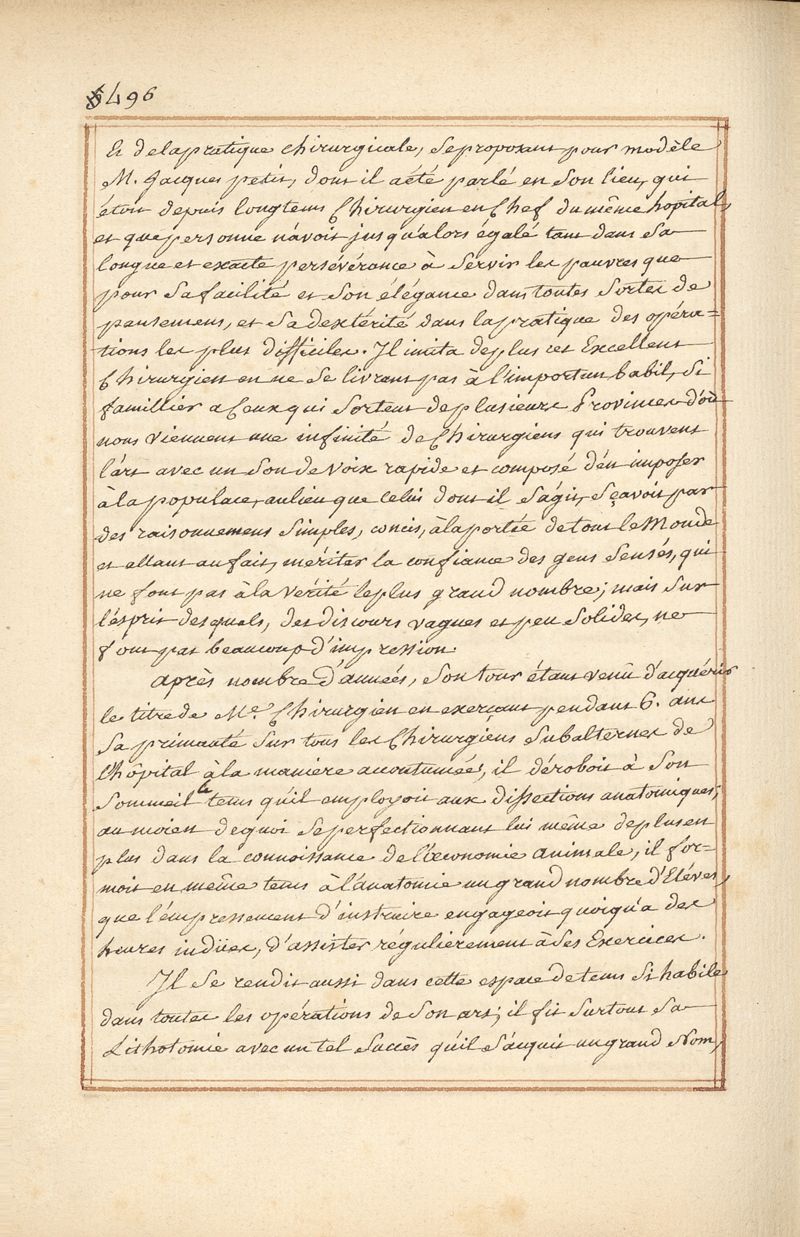 496
Et de la pratique chirurgicale, se proposant pour modèle
M. Jacques petit, dont il a été parlé en son lieu, qui
étoit depuis longtems Chirurgien en Chef du même hopital,
et que personne n'avoit jusqu'alors égalé tant dans sa
longue et exacte persévérance à servir les pauvres que
pour sa facilité et son élégance dans toutes sortes de
pansemens, et sa dextérité dans la pratique des opéra=
tions les plus difficiles. Il imita de plus cet Excellent
Chirurgien en ne se livrant pas à l'importun babil, si
famillier a Ceux qui sortent de plusieurs Provinces d'où
nous viennent une infinité de Chirurgiens qui trouvent
l'art avec un son de voix rapide et composé d'en imposer
à la populace, au lieu que celui dont il s'agit, sçavoit par
des raisonnemens simples, concis, à la portée de tout le Monde
et allant au fait, mériter la confiance des gens sensés, qui
ne font pas à la vérité le plus grand nombre; mais sur
l'esprit desquels, des discours vagues et peu solides, ne
font pas beaucoup d'impression.
après nombre d'années, son tour étant venu d'acquérir
le titre de Me. Chirurgien en exerçant pendant 6. ans
sa primauté sur tous les Chirurgiens subalternes de
l'hôpital à la maniere accoutumée, il déroboit à son
sommeil le tems qu'il employoit aux dissections anatomiques;
au moien de quoi se perfectionnant lui même de plus en
plus dans la connoissance de l'œconomie animale, il for=
moit en même tems à l'anatomie un grand nombre d'Eléves,
que l'empressement d'instruire engageoit quoiqu'a des
heures indües, d'assister régulierement à ses Exercices.
Il se rendit aussi dans cette espace de tems si habile
dans toutes les opérations de son art; il fit surtout sa
Lithotomie avec un tel succès qu'il s'acquit un grand Nom,